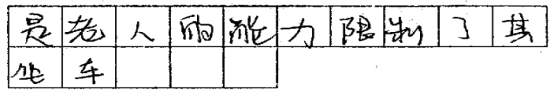 是老人的能力限制了其
坐车